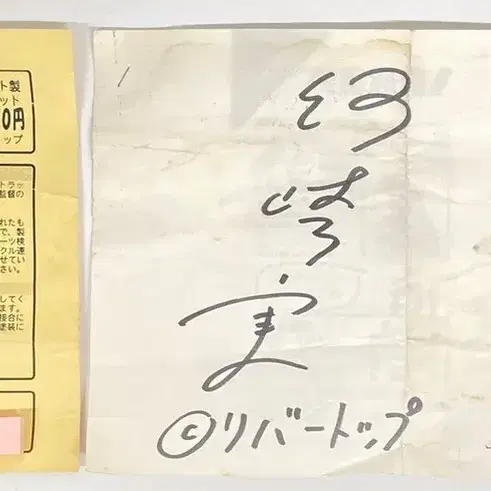 ト製
ット
0円
ップ
トラッ
監督の
れたも
で、製
ーツ検
クル連
せてい
さい。
してく
ます。
接合に
塗装に
河崎実
©リバートップ